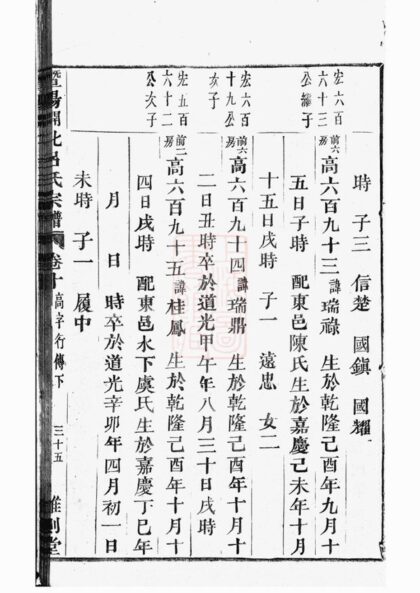 時 子三 信楚 國鎮 國耀
宏六百六十三公繼子
前六房高六百九十三諱瑞祿 生於乾隆己酉年九月十
五日子時 配東邑陳氏生於嘉慶己未年十月
十五日戌時 子一 遠忠 女二
宏六百十九公次子
前六房高六百九十四諱瑞鼎 生於乾隆己酉年十月十
二日丑時卒於道光甲午年八月三十日戌時
宏五百六十二公次子
前二房高六百九十五諱桂鳳 生於乾隆己酉年十月十
四日戌時 配東邑水下虞氏生於嘉慶丁巳年
月 日 時卒於道光辛卯年四月初一日
未時 子一 履中
暨陽開化呂氏宗譜 卷十 高字行傳下 三十五